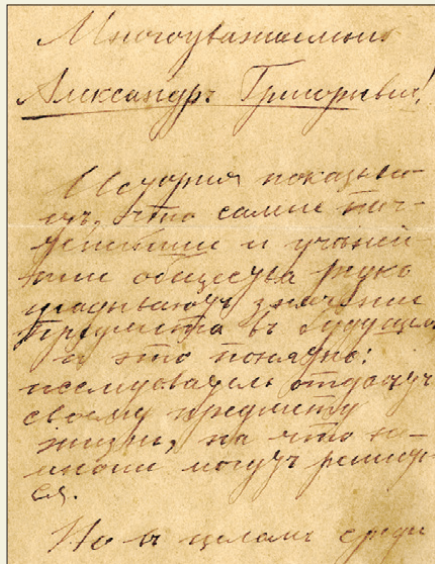 Многоуважаемый
Александръ Григорьевич!
История показыва-
етъ, что самые поч-
теннѣйшие и учёней-
шие общества редко
угадывают значение
предмета въ будущем
и это понятно:
исследователь отдаетъ
своему предмету
жизнь, на что не-
многие могутъ решить-
ся.
Но в целомъ среди